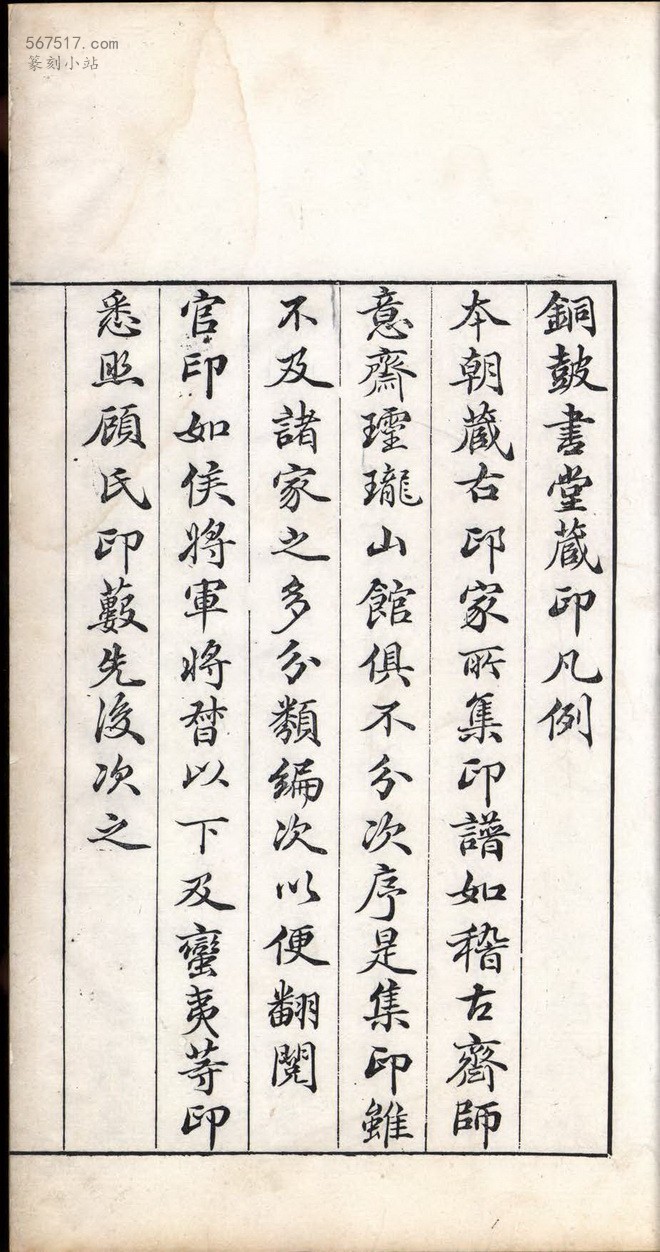 567517.com
篆刻小站
銅鼓書堂藏印凡例
本朝藏古印家所集印譜如稽古齋師
意齋瓗瓏山館俱不分次序是集印雖
不及諸家之多分類編次以便翻閱
官印如侯將軍將督以下及蠻夷等印
悉照顧氏印藪先後次之